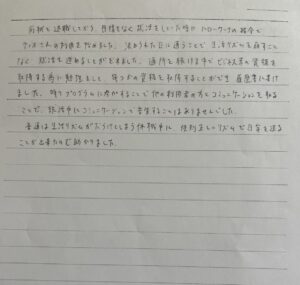 前職を退職してから、目標もなく就活をしていた時に、ハローワークの紹介で
の利用を始めました。決められた日に通うことで生活リズムを崩すこと
なく、就活を進めることができました。通所を続ける中でビジネス系の資格を
取得する為に勉強をして、2つの資格を取得することができ、履歴書に書け
ました。時々プログラムに参加することで他の利用者の方とコミュニケーションを取る
ことで、就活中にコミュニケーションで苦労することはありませんでした。
普通は生活リズムがだらけてしまう休職中に、規則正しいリズムで日常を送る
ことが出来たので助かりました。